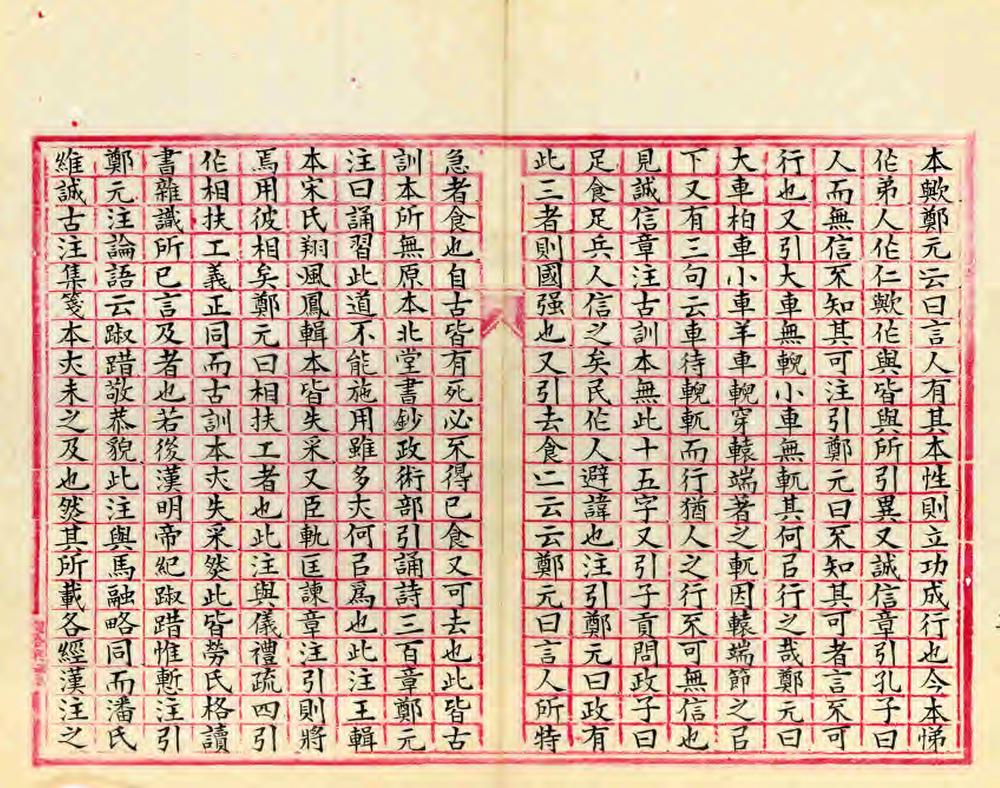 本歟鄭元云曰言人有其本性則立功成行也今本悌
作弟人作仁歟作與皆與所引異又誠信章引孔子曰
人而無信不知其可注引鄭元曰不知其可者言不可
行也又引大車無輗小車無軏其何㠯行之哉鄭元曰
大車柏車小車羊車輗穿轅端著之軏因轅端節之㠯
下又有三句云車待輗軏而行猶人之行不可無信也
見誠信章注古訓本無此十五字又引子貢問政子曰
足食足兵人信之矣民作人避諱也注引鄭元曰政有
此三者則國强也又引去食二云云鄭元曰言人所特
急者食也自古皆有死必不得已食又可去也此皆古
訓本所無原本北堂書鈔政術部引誦詩三百章鄭元
注曰誦習此道不能施用雖多亦何㠯爲也此注王輯
本宋氏翔颿鳳輯本皆失采又臣軌匡諫章注引則將
焉用彼相矣鄭元曰相扶工者也此注與儀禮疏四引
作相扶工義正同而古訓本亦失采然此皆勞氏格讀
書雜識所已言及者也若後漢明帝紀踧踖惟慙注引
鄭元注論語云踧踖敬恭貌此注與馬融略同而潘氏
維誠古注集箋本亦未之及也然其所載各經漢注之